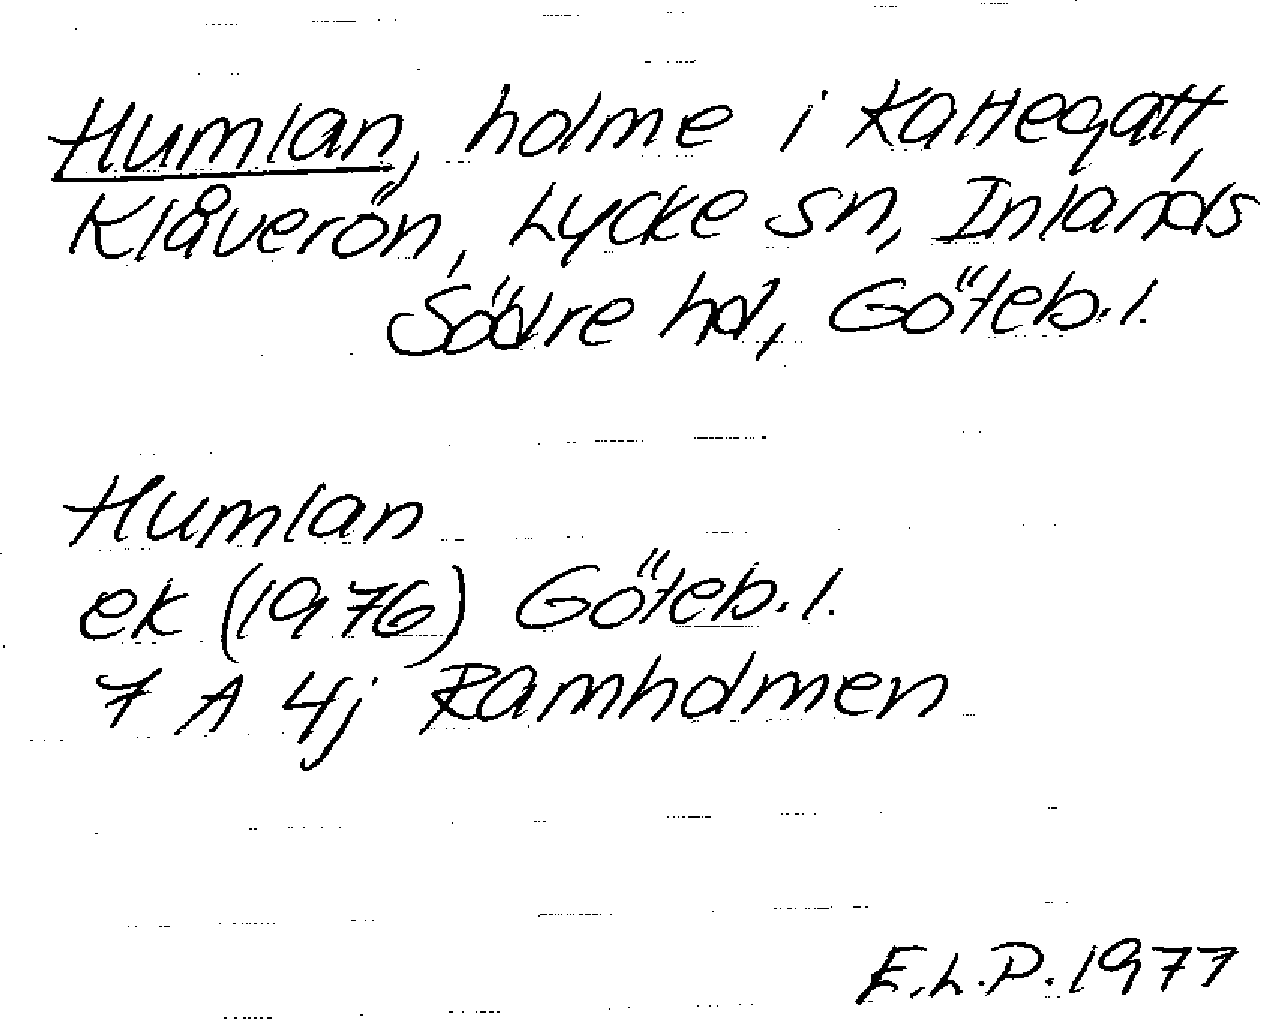 Humlan, holme i Kattegatt,
Klåverön, Lycke sn, Inlands
Södre hd, Göteb.l.
Humlan
ek (1976) Göteb.l.
7 A 4j Ramholmen
E.L.P. 1977